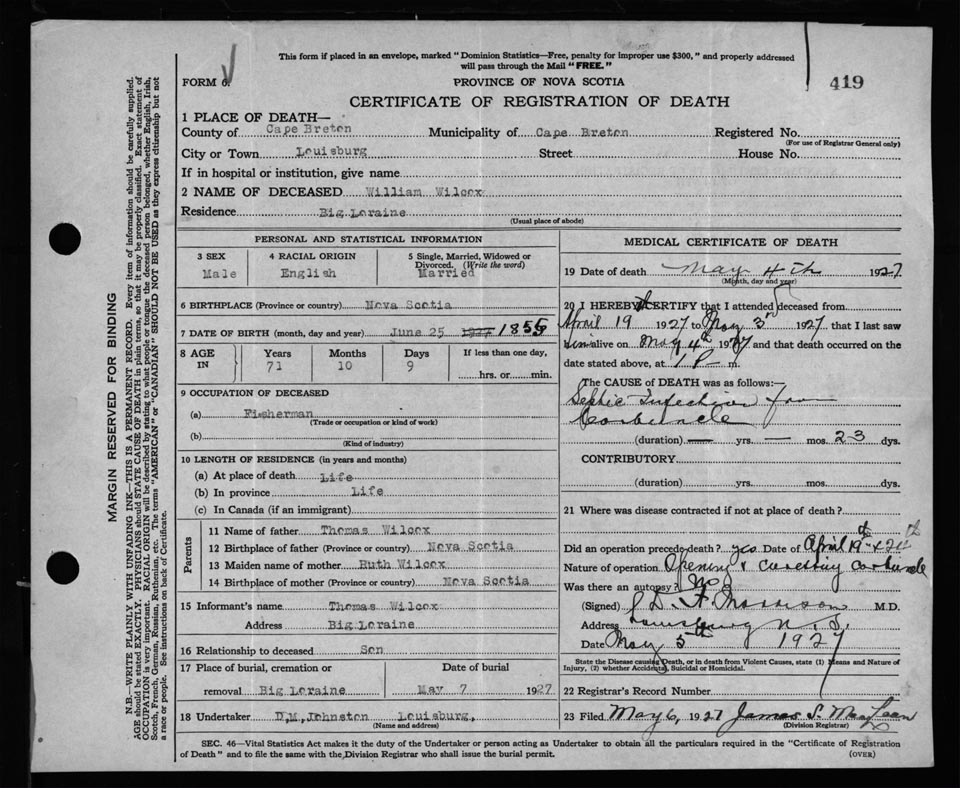 This form if placed in an envelope, marked "Dominion Statistics—Free, penalty for improper use $300," and properly addressed
will pass through the Mail "FREE."
FORM 6.
PROVINCE OF NOVA SCOTIA
419
CERTIFICATE OF REGISTRATION OF DEATH
1 PLACE OF DEATH—
County of Cape Breton Municipality of Cape Breton Registered No.
(For use of Registrar General only)
City or Town Louisburg Street House No.
If in hospital or institution, give name
2 NAME OF DECEASED William Wilcox
Residence Big Loraine
(Usual place of abode)
PERSONAL AND STATISTICAL INFORMATION
3 SEX 4 RACIAL ORIGIN 5 Single, Married, Widowed or
Divorced. (Write the word)
Male English Married
6 BIRTHPLACE (Province or country) Nova Scotia
7 DATE OF BIRTH (month, day and year) June 25
8 AGE IN Years Months Days If less than one day,
71 10 9 hrs. or min.
9 OCCUPATION OF DECEASED
(a) Fisherman
(Trade or occupation or kind of work)
(b)
(Kind of industry)
10 LENGTH OF RESIDENCE (in years and months)
(a) At place of death Life
(b) In province Life
(c) In Canada (if an immigrant)
Parents
11 Name of father Thomas Wilcox
12 Birthplace of father (Province or country) Nova Scotia
13 Maiden name of mother Ruth Wilcox
14 Birthplace of mother (Province or country) Nova Scotia
15 Informant's name Thomas Wilcox
Address Big Loraine
16 Relationship to deceased Son
17 Place of burial, cremation or Date of burial
removal Big Loraine May 7 1927
18 Undertaker D,M,Johnston Louisburg,
(Name and address)
MEDICAL CERTIFICATE OF DEATH
19 Date of death May 4th 1927
(Month, day and year)
20 I HEREBY CERTIFY that I attended deceased from
April 19 1927 to May 3rd 1927, that I last saw
him alive on May 4th 1927 and that death occurred on the
date stated above, at 1 P m.
The CAUSE OF DEATH was as follows:—
Septic Infection from
Carbuncle
(duration) — yrs. — mos. 23 dys.
CONTRIBUTORY
(duration) yrs. mos. dys.
21 Where was disease contracted if not at place of death?
Did an operation precede death? yes Date of April 19th & 24th
Nature of operation Opening & Curetting Carbuncle
Was there an autopsy? No
(Signed) D. F. Morrison M.D.
Address Louisburg N.S.
Date May 5th 1927
State the Disease causing Death, or in death from Violent Causes, state (1) Means and Nature of
Injury, (2) whether Accidental, Suicidal or Homicidal.
22 Registrar's Record Number
23 Filed May 6, 1927 James S. MacLean
(Division Registrar)
SEC. 46—Vital Statistics Act makes it the duty of the Undertaker or person acting as Undertaker to obtain all the particulars required in the "Certificate of Registration
of Death" and to file the same with the Division Registrar who shall issue the burial permit. (OVER)
MARGIN RESERVED FOR BINDING
N.B.—WRITE PLAINLY WITH UNFADING INK—THIS IS A PERMANENT RECORD. Every item of information should be carefully supplied.
AGE should be stated EXACTLY. PHYSICIANS should STATE CAUSE OF DEATH in plain terms, so that it may be properly classified. Exact statement of
OCCUPATION is very important. RACIAL ORIGIN will be described by stating to what people or tongue the deceased person belonged, whether English, Irish,
Scotch, French, German, Russian, Ruthenian, etc. The terms "AMERICAN" or "CANADIAN" SHOULD NOT BE USED as they express citizenship but not
a race or people. See instructions on back of Certificate.